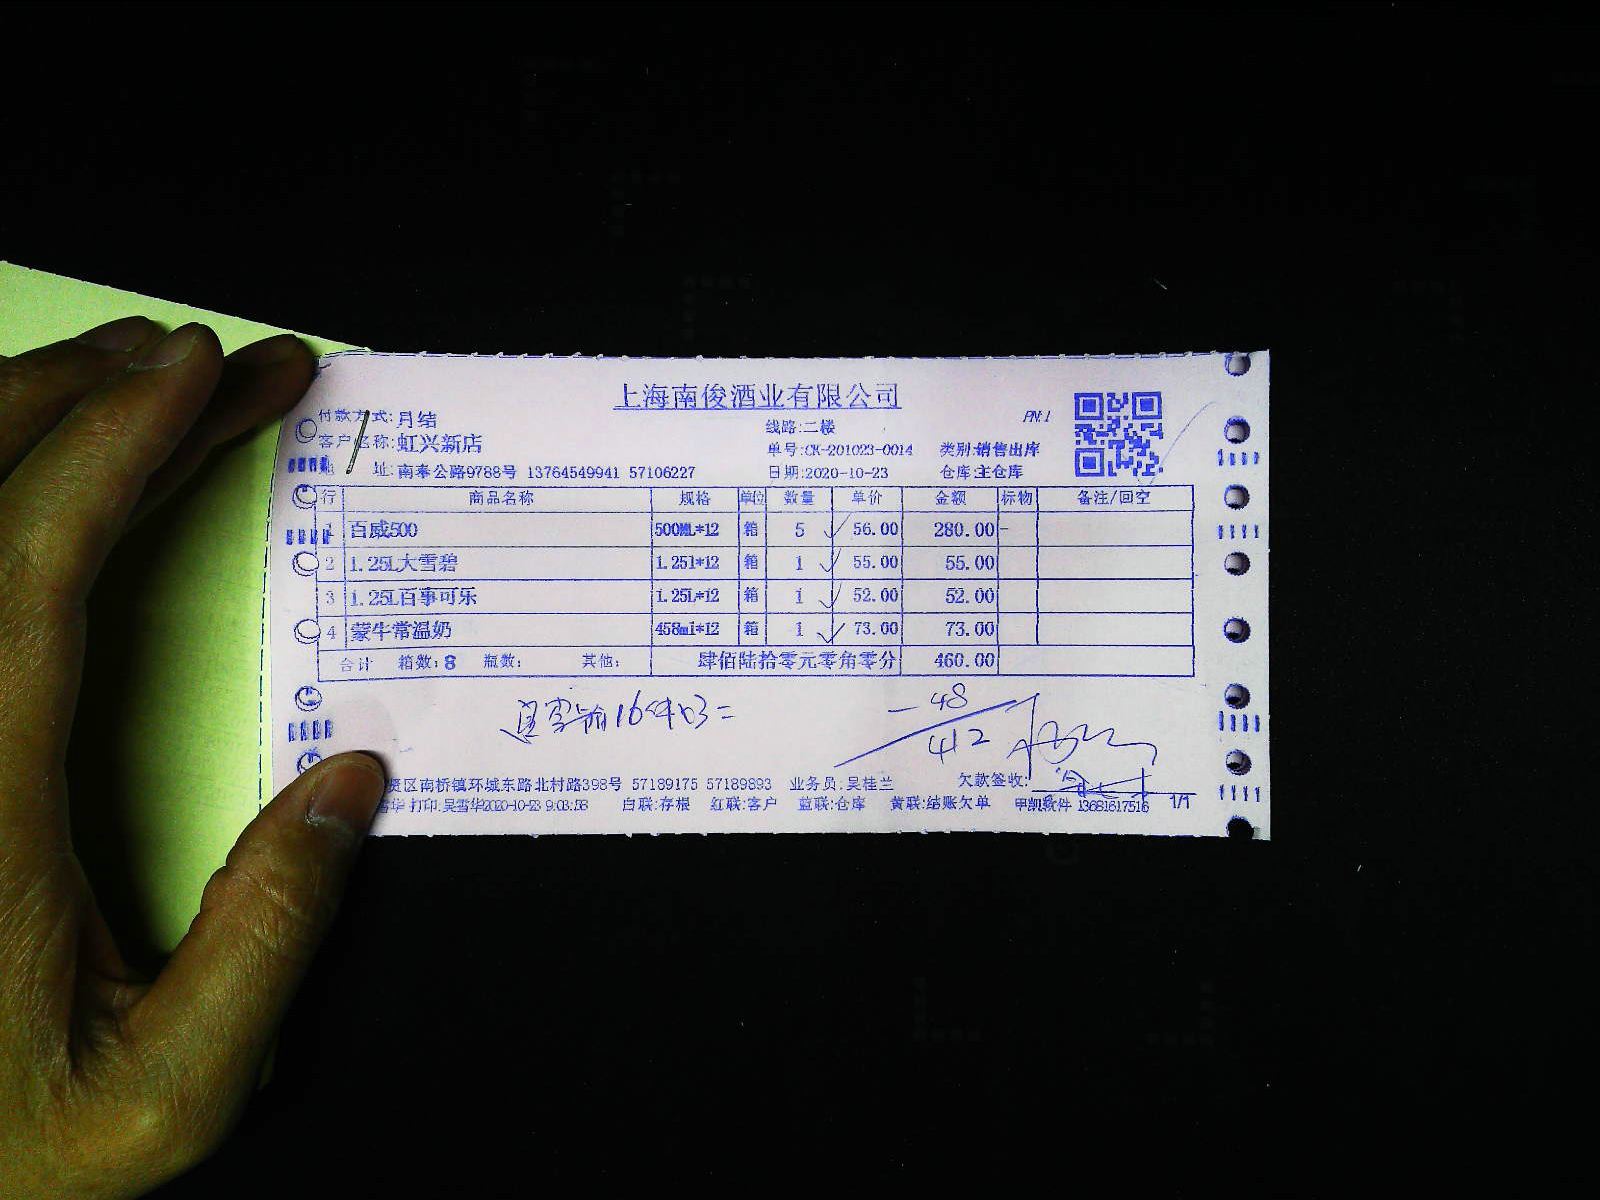 上海南俊酒业有限公司
付款方式:月结 线路:二楼 PN:1
客户名称:虹兴新店 单号:CK-201023-0014 类别:销售出库
址:南奉公路9788号 13764549941 57106227 日期:2020-10-23 仓库:主仓库
行 商品名称 规格 单位 数量 单价 金额 标物 备注/回空
1 百威500 500ML*12 箱 5 56.00 280.00 -
2 1.25L大雪碧 1.25l*12 箱 1 55.00 55.00
3 1.25L百事可乐 1.25L*12 箱 1 52.00 52.00
4 蒙牛常温奶 458ml*12 箱 1 73.00 73.00
合计 箱数:8 瓶数: 其他: 肆佰陆拾零元零角零分 460.00
-48
412
贤区南桥镇环城东路北村路398号 57189175 57189893 业务员:吴桂兰 欠款签收:
雪华 打印:吴雪华2020-10-23 9:03:58 白联:存根 红联:客户 蓝联:仓库 黄联:结账欠单 甲凯软件 13681617516 1/1